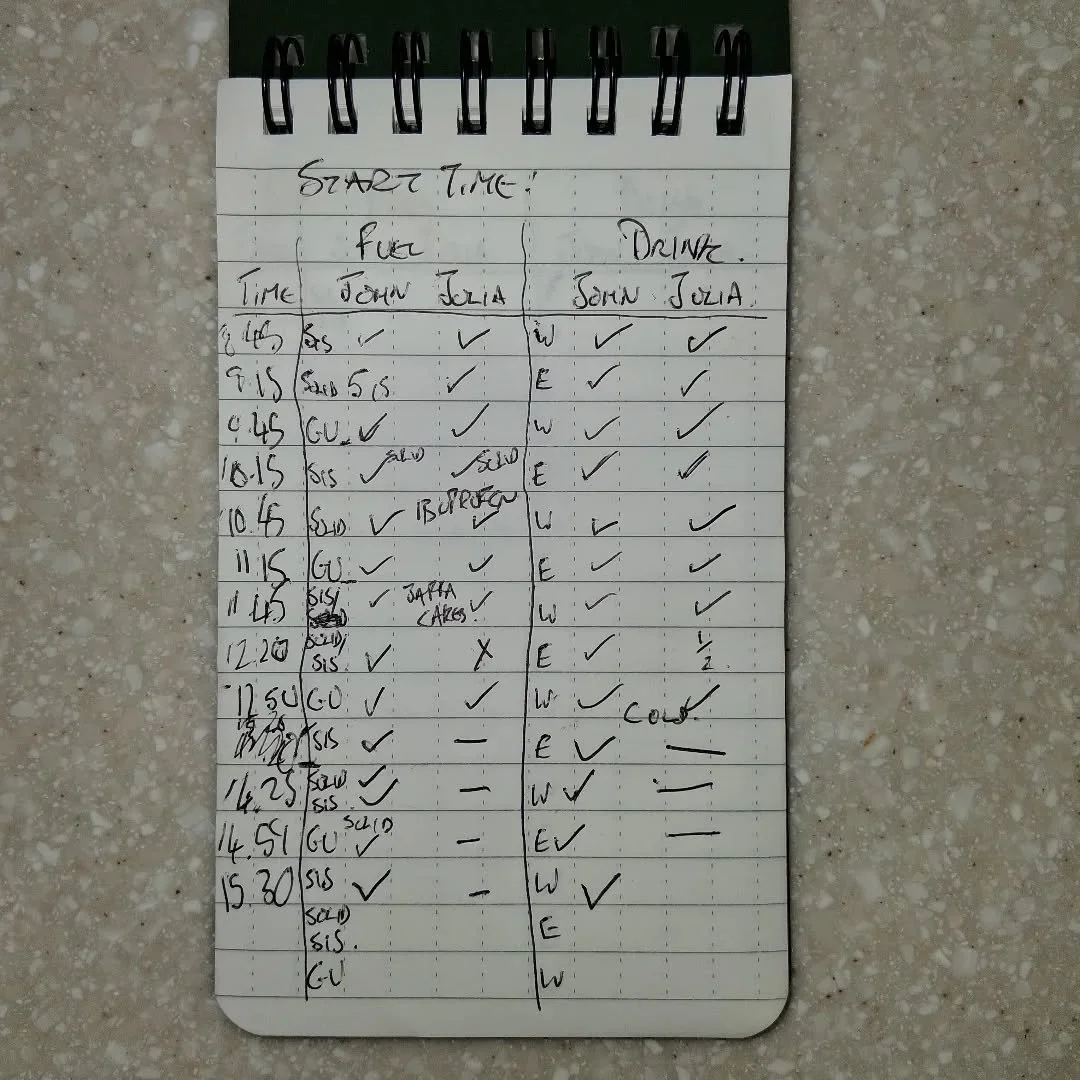 START TIME:
FUEL DRINK.
TIME JOHN JULIA JOHN JULIA
8.45 SIS ✓ ✓ W ✓ ✓
9.15 SOLID SIS ✓ E ✓ ✓
9.45 GU ✓ ✓ W ✓ ✓
10.15 SIS ✓ SOLID ✓ SOLID E ✓ ✓
IBUPROFEN
10.45 SOLID ✓ ✓ W ✓ ✓
11.15 GU ✓ ✓ E ✓ ✓
11.45 SIS/ ✓ JAFFA CAKES. ✓ W ✓ ✓
12.20 SOLID/ SIS ✓ X E ✓ 1/2.
12.50 GU ✓ ✓ W ✓ ✓
SIS ✓ — E ✓ —
14.25 SOLID ✓ SIS ✓ — W ✓ —
14.51 GU SOLID ✓ — E ✓ —
15.30 SIS ✓ — W ✓
SOLID SIS. E
GU W